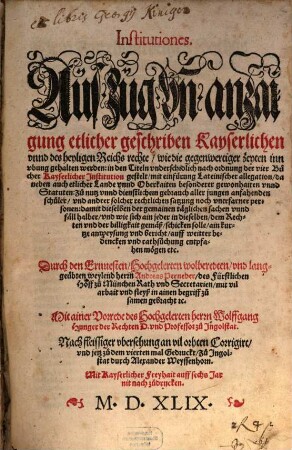 ex libris Georgij Kiniger
Institutiones.
Auszug vñ anzai
gung etlicher geschriben Kayserlichen
vnnd des heyligen Reichs rechte / wie die gegenwertiger zeyten inn
vbung gehalten werden: in den Titeln vnderschidlich nach ordnung der vier Bü
cher Kayserlicher Institution gestelt / mit einfürung Lateinischer allegation / da
neben auch etlicher Lande vnnd Oberkaiten besonderer gewonhaiten vnnd
Statuten: zů nutz vnnd dienstlichem gebrauch aller jungen anfahenden
schůler / vnd andrer solcher rechtlichen satzung noch vnerfarner per
sonen: damit dieselben der gemainen täglichen sachen vnnd
fäll halber / vnd wie sich ain jeder in dieselben / dem Rech
ten vnd der billigkeit gemäß / schicken solle / ain kur
tze anzeygung vnd bericht / auff weitter be
dencken vnd rathsůchung entpfa
hen mögen etc.
Durch den Ernuesten / Hochgelerten wolberedten / vnd lang
geübten weylend herrn Andreas Perneder / des Fürstlichen
Hoffs zů München Rath vnd Secretarien / mit vil
arbait vnd fleyß in ainen begriff zů
samen gebracht etc.
Mit ainer Vorrede des Hochgelerten herrn Wolffgang
Hunger der Rechten D. vnd Professor zů Jngolstat.
Nach fleissiger vbersehung an vil orthen Corrigirt /
vnd jetz zů dem vierten mal Gedruckt / Zů Jngol
stat durch Alexander Weyssenhorn.
Mit Kayserlicher Freyhait auff sechs Jar
nit nach zůdrucken.
M. D. XLIX.